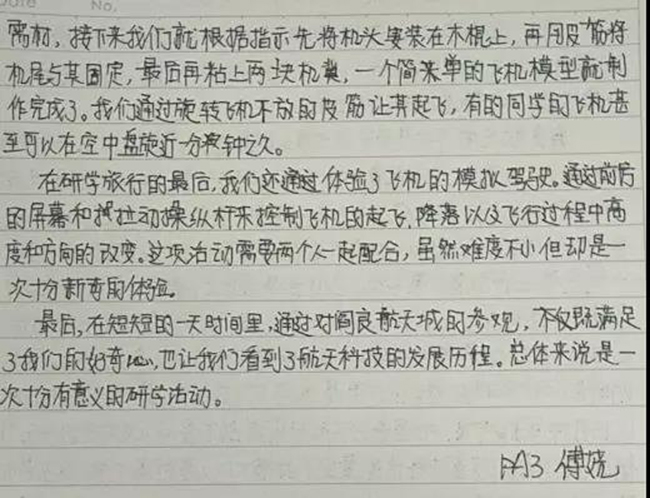 Date No.
器材，接下来我们就根据指示先将机头安装在木棍上，再用皮筋将
机尾与其固定，最后再粘上两块机翼，一个简单的飞机模型就制
作完成了。我们通过旋转飞机下放的皮筋让其起飞，有的同学的飞机甚
至可以在空中盘旋近一分钟之久。
在研学旅行的最后，我们还通过体验了飞机的模拟驾驶。通过前后
的屏幕和拉动操纵杆来控制飞机的起飞、降落以及飞行过程中高
度和方向的改变。这项活动需要两个人一起配合，虽然难度不小但却是一
次十分新奇的体验。
最后，在短短的一天时间里，通过对阎良航天城的参观，不仅满足
了我们的好奇心，也让我们看到了航天科技的发展历程。总体来说是一
次十分有意义的研学活动。
傅娆